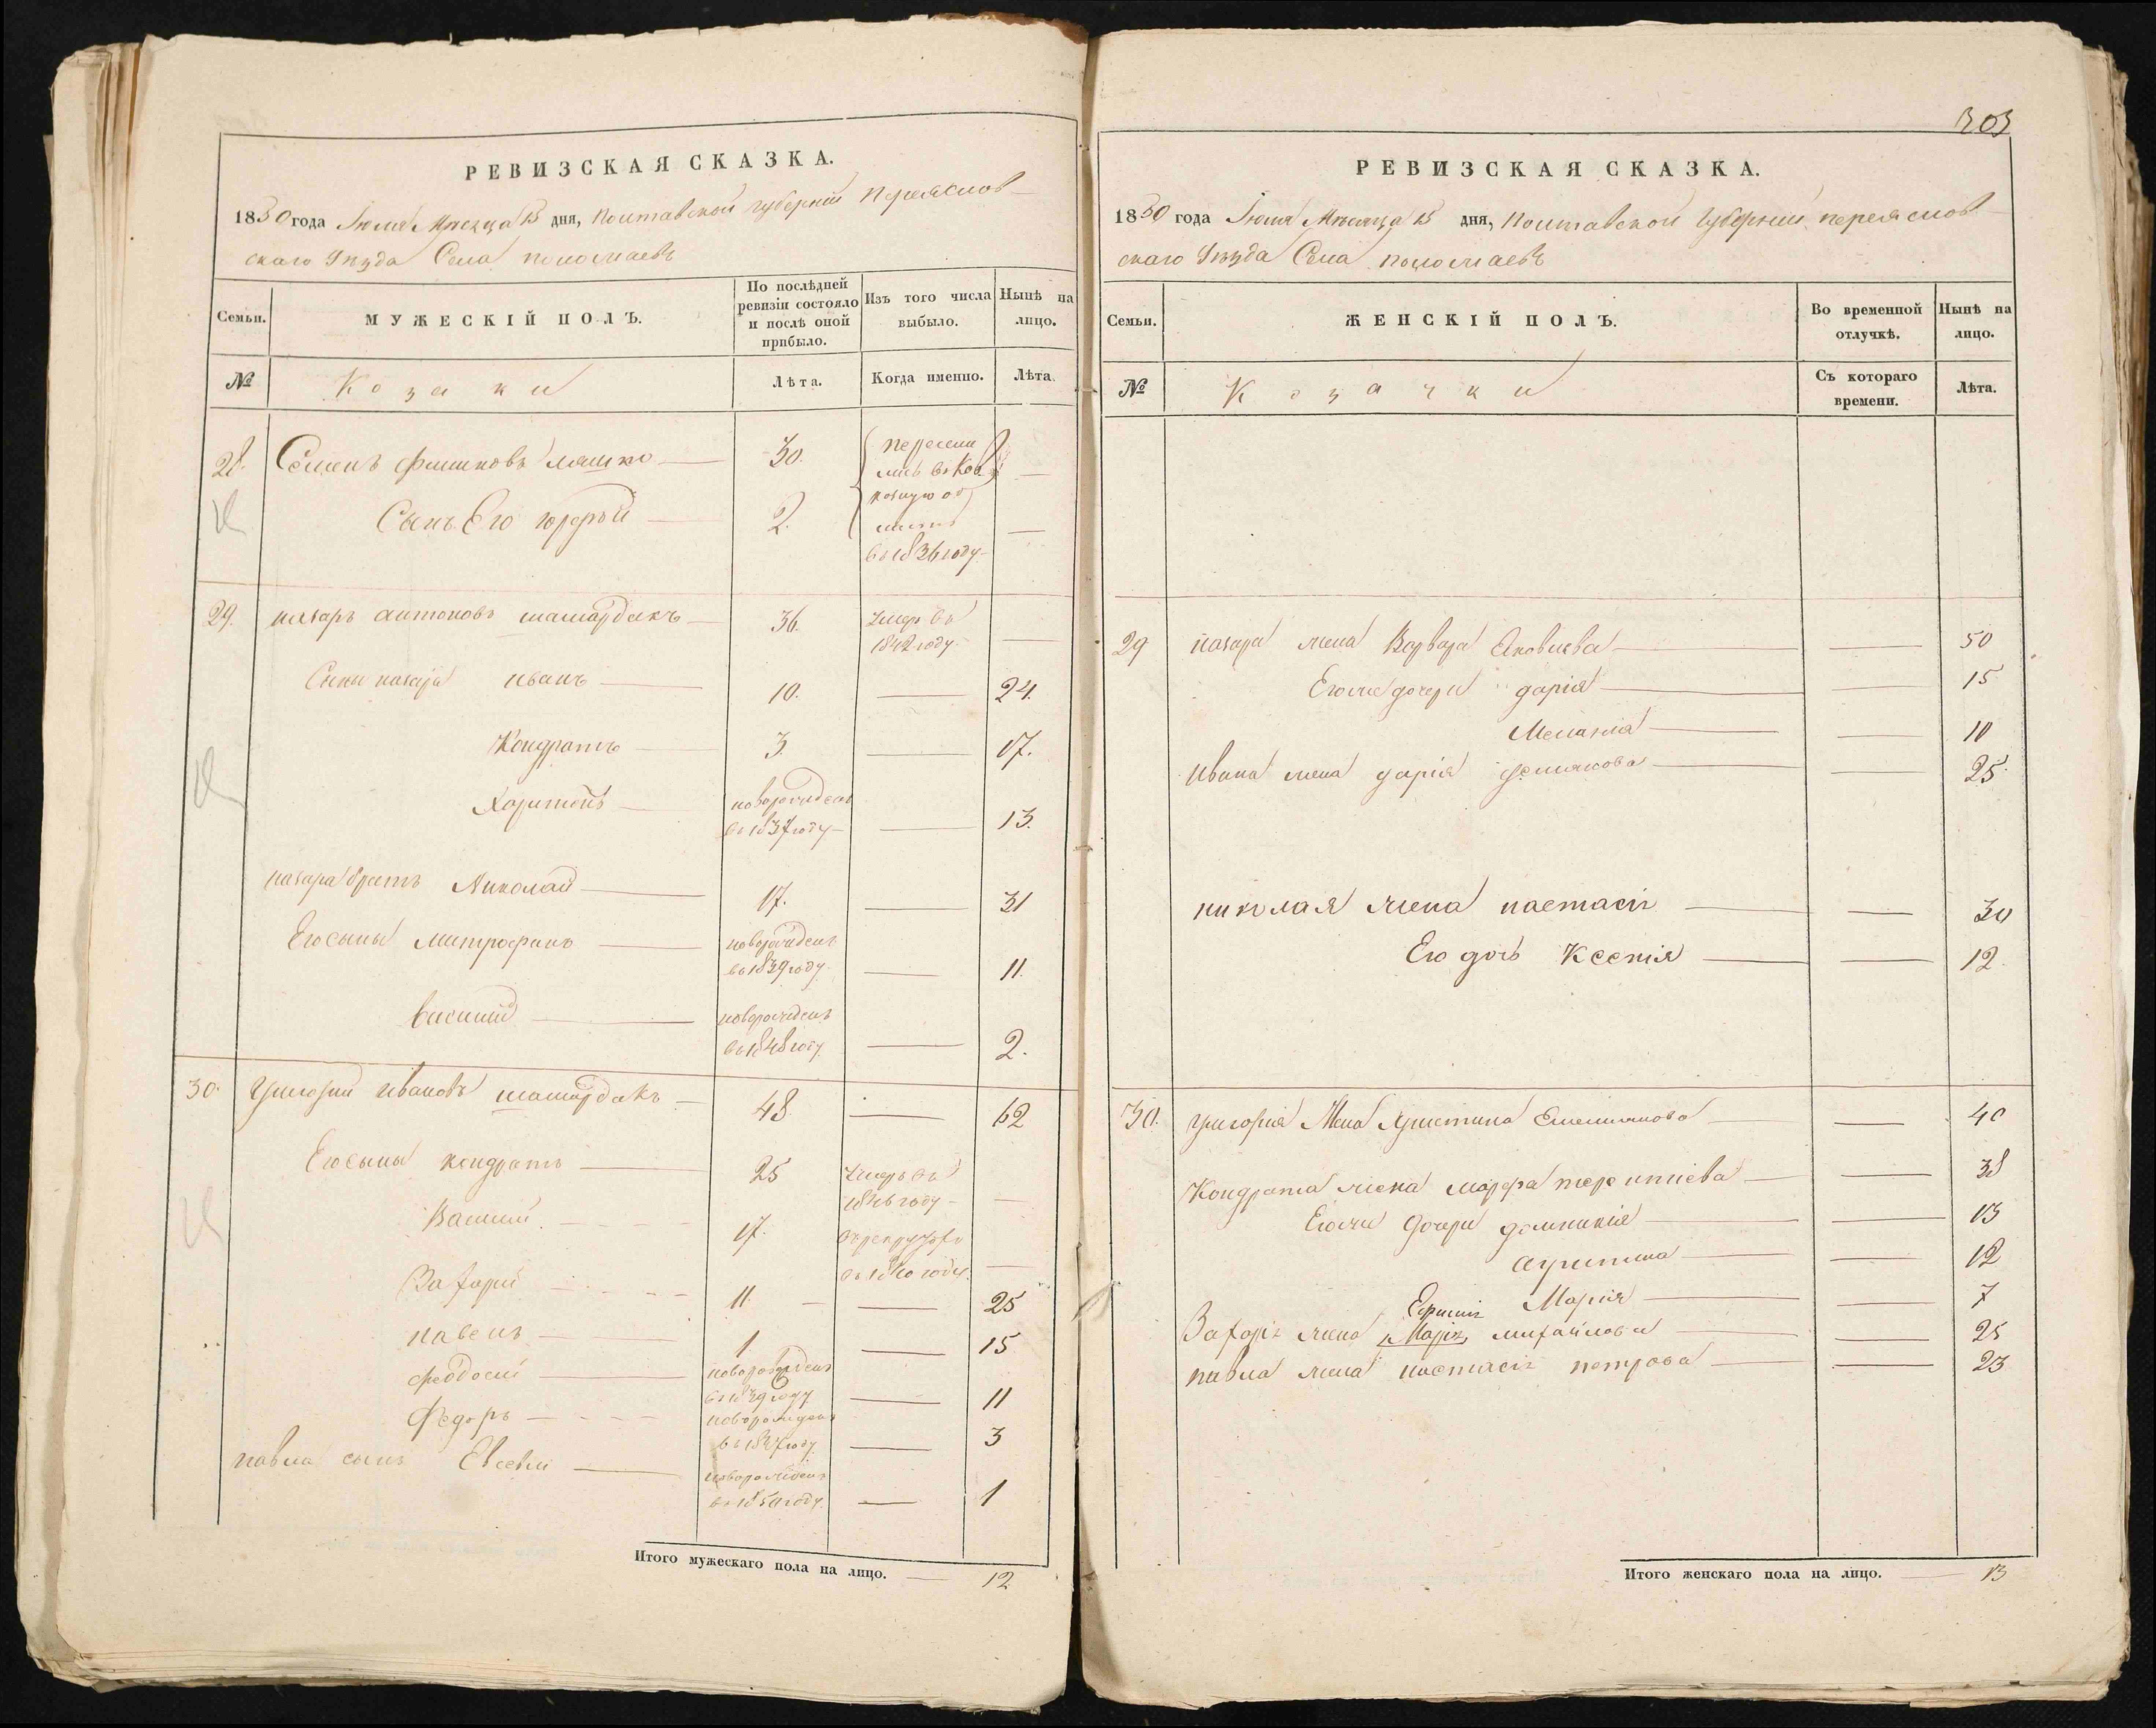 РЕВИЗСКАЯ СКАЗКА.
1850 года Іюля Мѣсяца 15 дня, Полтавской губерніи Переяслов
скаго Уѣзда Села
Семьи.
МУЖЕСКІЙ ПОЛЪ.
По послѣдней ревизіи состояло и послѣ оной прибыло.
Изъ того числа выбыло.
Нынѣ на лицо.
№
Козаки
Лѣта.
Когда именно.
Лѣта.
28. Семенъ ляшко 30.
Сынъ Его 2.
пересели
лись въ Кав
казкую об
ласть
въ 1836 году
29. назаръ антоновъ шамардакъ 36. Умер въ
1842 году
Сыны назара иванъ 10. 24.
Кондратъ 3. 17.
Харитонъ новорожденъ
въ 1837 году 13.
назара братъ Николай 17. 31
Его сыны митрофанъ новорожденъ
въ 1839 году 11.
василий новорожденъ
въ 1848 году 2.
30. григорий ивановъ шамардакъ 48 62
Его сыны кондратъ 25 Умеръ въ
1846 году
Василий 17. въ рекруты
въ 1840 году.
Захарий 11. 25
павелъ 1 15
феодосий новорожденъ
въ 1839 году 11
Федоръ новорожденъ
въ 1847 году 3
павла сынъ Евсевий новорожденъ
въ 1850 году. 1
Итого мужескаго пола на лицо. 12
303
РЕВИЗСКАЯ СКАЗКА.
1850 года Іюля Мѣсяца 15 дня, Полтавской Губерніи переяслов
скаго Уѣзда Села
Семьи.
ЖЕНСКІЙ ПОЛЪ.
Во временной отлучкѣ.
Нынѣ на лицо.
№
Козачки
Съ котораго времени.
Лѣта.
29 назара жена Варвара Яковлева 50
Его же дочери дарія 15
Меланія 10
Ивана жена дарія демянова 25.
николая жена настасія 30
Его дочь Ксенія 12.
30. григорія Жена христина Емельянова 40
Кондрата жена марфа терентіева 38
Его же дочери домникія 13
12
Марія 7
Захарія жена Ефимія Марія михайлова 25
павла жена настасія петрова 23
Итого женскаго пола на лицо. 13